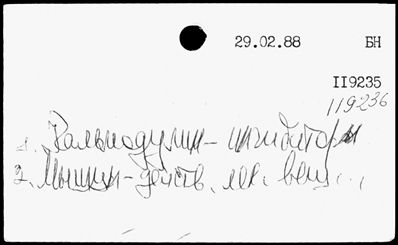 29.02.88 БН
II9235
119236
1. Кальмодулин - ингибиторы
2. Мышцы - действ. лек. вещ...